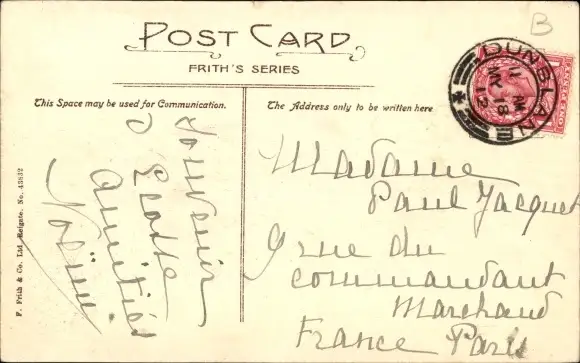 POST CARD
FRITH'S SERIES
This Space may be used for Communication.
The Address only to be written here
Souvenir
d'Ecosse
Amitiés
Noëmi
Madame
Paul Jacquet
9 rue du
commandant
Marchand
France Paris
DUNBLANE
11 AM
MY 18
12
ONE PENNY
B
F. Frith & Co. Ltd. Reigate. No. 43832